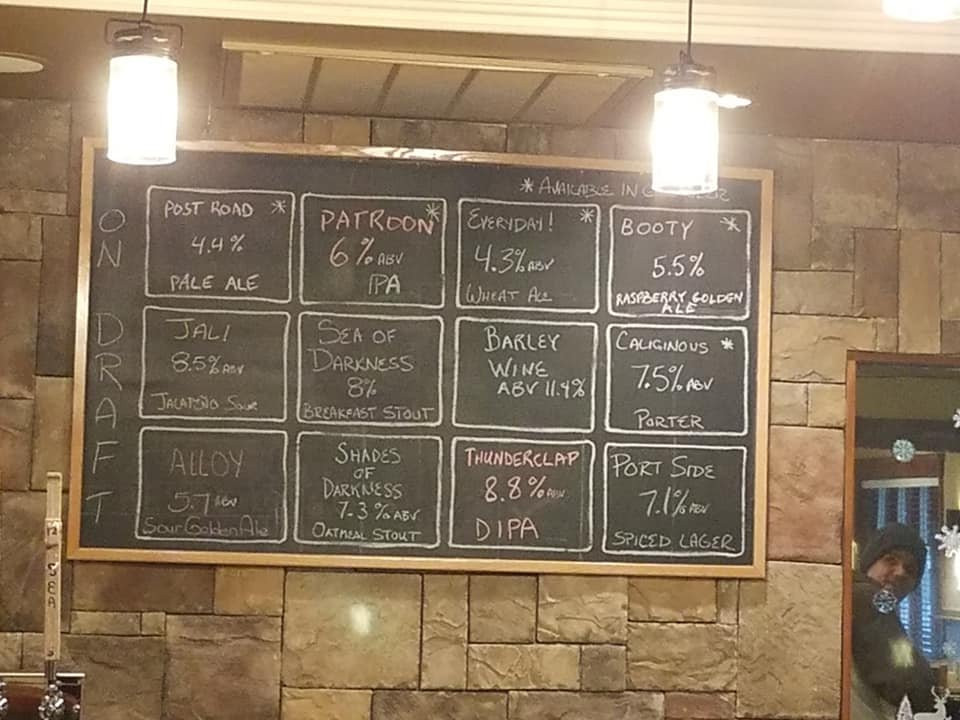 * AVAILABLE IN
ON DRAFT
POST ROAD *
4.4%
PALE ALE
PATROON *
6% ABV
IPA
EVERYDAY! *
4.3% ABV
WHEAT ALE
BOOTY *
5.5%
RASPBERRY GOLDEN
ALE
JALI
8.5% ABV
JALAPEÑO SOUR
SEA OF
DARKNESS
8%
BREAKFAST STOUT
BARLEY
WINE
ABV 11.4%
CALIGINOUS *
7.5% ABV
PORTER
ALLOY
5.7 ABV
Sour Golden Ale!
SHADES
OF
DARKNESS
7.3% ABV
OATMEAL STOUT
THUNDERCLAP
8.8% ABV
DIPA
PORT SIDE
7.1% ABV
SPICED LAGER
SEA